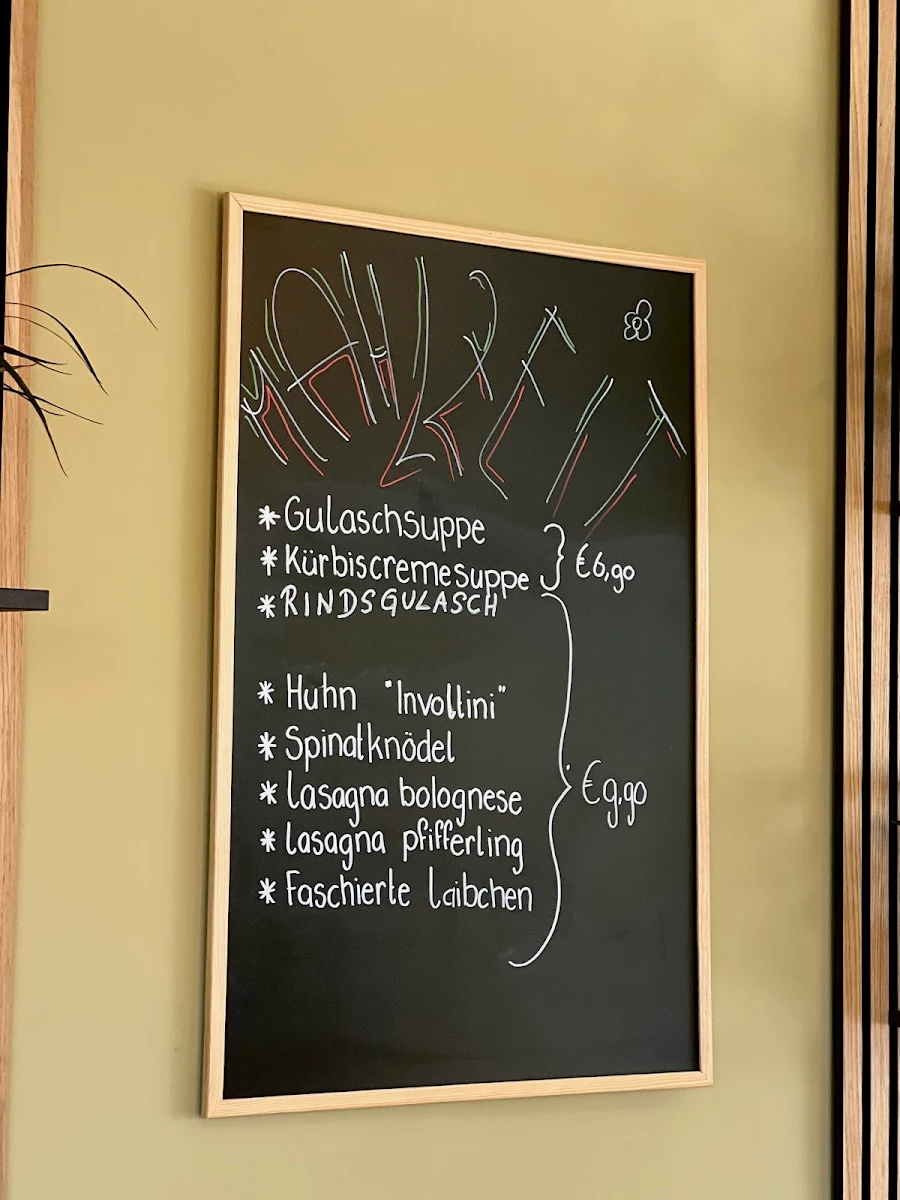 MAHLZEIT
*Gulaschsuppe
*Kürbiscremesuppe
€6,90
*RINDSGULASCH
* Huhn "Involtini"
* Spinatknödel
* Lasagna bolognese
* Lasagna pfifferling
* Faschierte Laibchen
€9,90